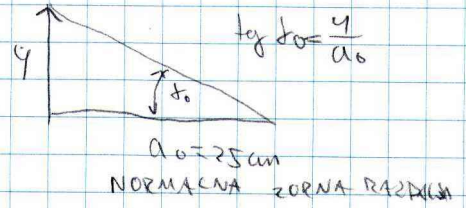 tg γ₀ = y/a₀
y
γ₀
a₀ = 25 cm
NORMALNA ZORNA RAZDALJA